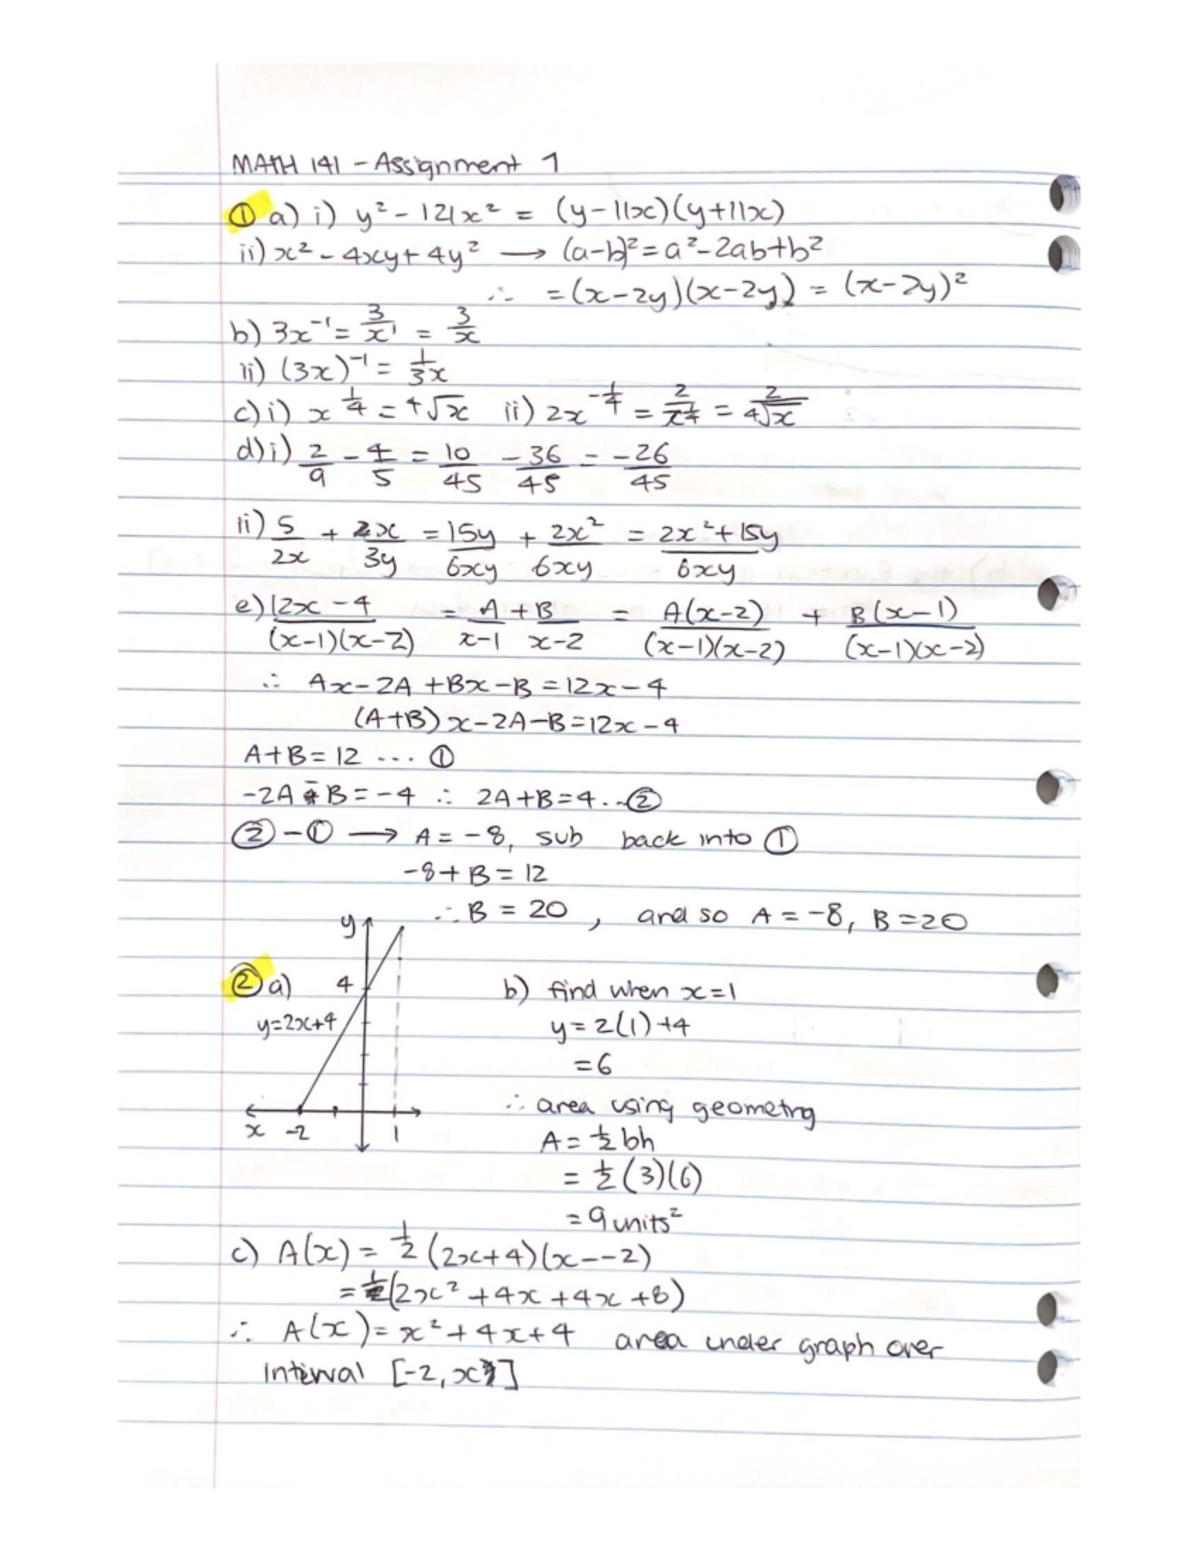 MATH 141 - Assignment 1
① a) i) y² - 121x² = (y-11x)(y+11x)
ii) x² - 4xy + 4y² → (a-b)² = a²-2ab+b²
∴ = (x-2y)(x-2y) = (x-2y)²
b) 3x⁻¹ = 3/x¹ = 3/x
ii) (3x)⁻¹ = 1/3x
c) i) x^1/4 = ⁴√x ii) 2x^-1/4 = 2/x^1/4 = 2/⁴√x
d) i) 2/9 - 4/5 = 10/45 - 36/45 = -26/45
ii) 5/2x + 2x/3y = 15y/6xy + 2x²/6xy = 2x²+15y/6xy
e) 12x-4/(x-1)(x-2) = A/x-1 + B/x-2 = A(x-2)/(x-1)(x-2) + B(x-1)/(x-1)(x-2)
∴ Ax-2A+Bx-B = 12x-4
(A+B)x-2A-B=12x-4
A+B = 12 ... ①
-2A-B = -4 ∴ 2A+B=4..②
②-① → A = -8, sub back into ①
-8+B = 12
∴ B = 20, and so A = -8, B=20
② a)
y
4
y=2x+4
x -2 1
b) find when x=1
y = 2(1)+4
=6
∴ area using geometry
A = ½ bh
= ½ (3)(6)
= 9 units²
c) A(x) = ½ (2x+4)(x--2)
= ½(2x² + 4x + 4x + 8)
∴ A(x) = x² + 4x + 4 area under graph over
interval [-2, x]